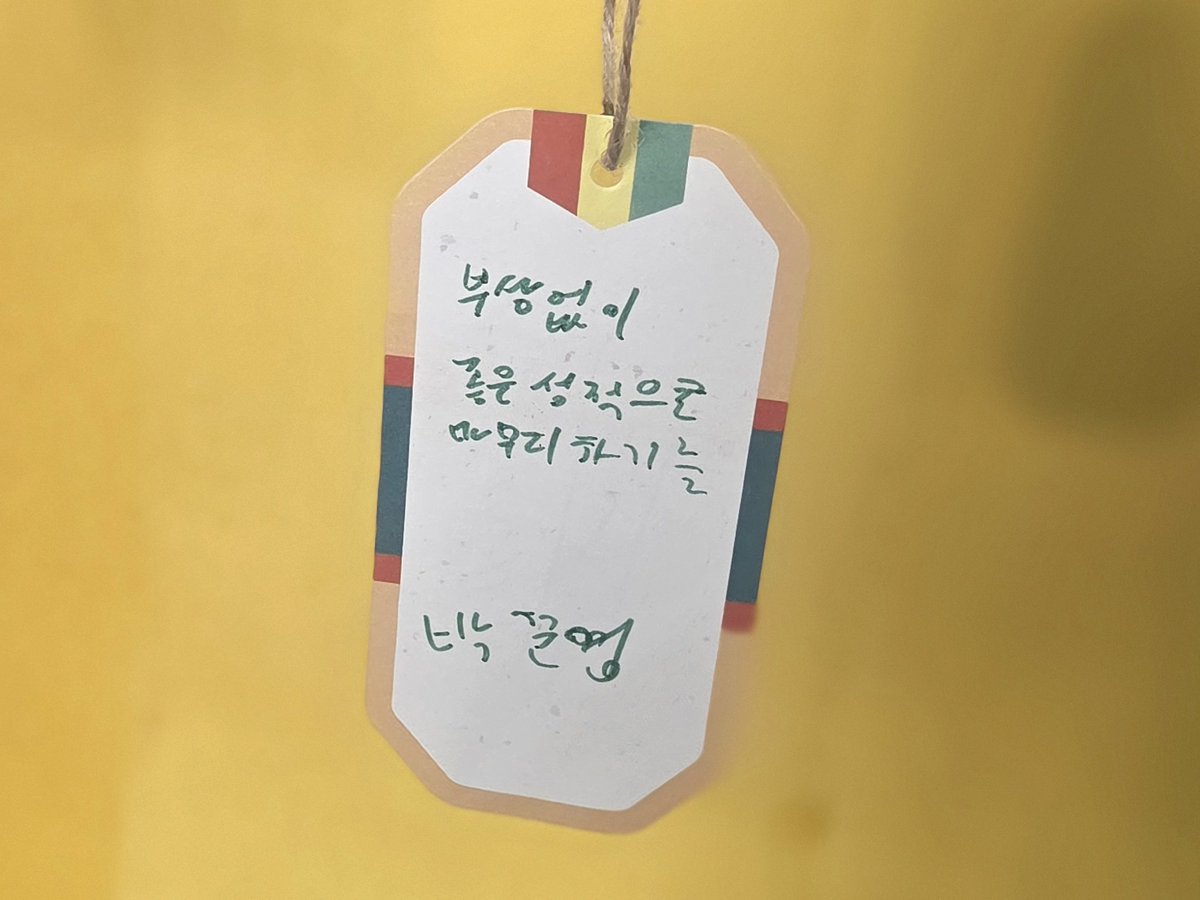 부상없이
좋은 성적으로
마무리하기를
박